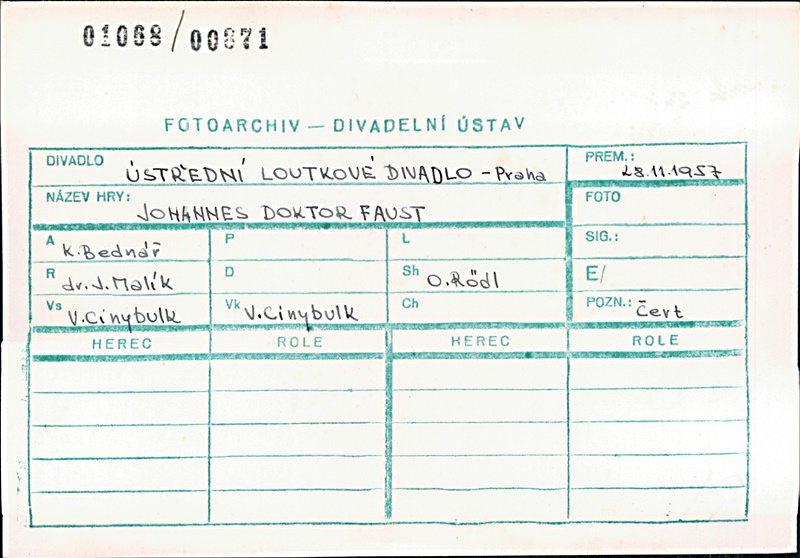 01068/00871
FOTOARCHIV — DIVADELNÍ ÚSTAV
DIVADLO ÚSTŘEDNÍ LOUTKOVÉ DIVADLO - Praha
PREM.: 28.11.1957
NÁZEV HRY: JOHANNES DOKTOR FAUST
FOTO
A K. Bednář P L SIG.:
R dr. J. Malík D Sh O. Rödl E/
Vs V. Cinybulk Vk V. Cinybulk Ch POZN.: Čert
HEREC ROLE HEREC ROLE